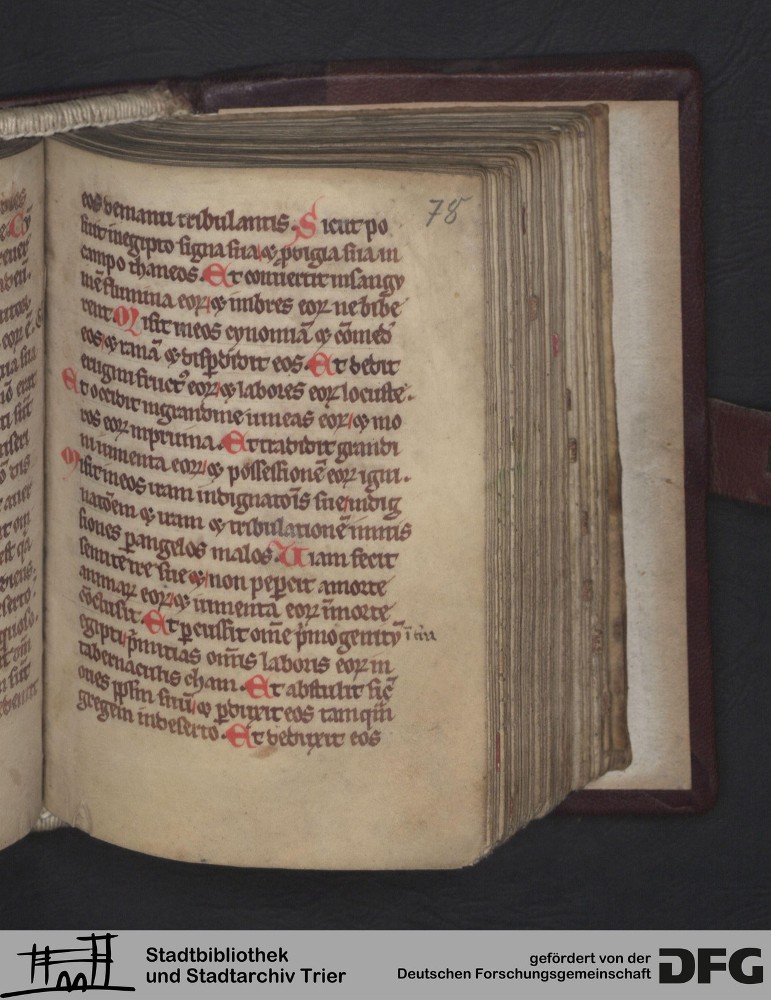 78
eos de manu tribulantis. Sicut po
suit in egipto signa sua ⁊ ꝓdigia sua in
campo thaneos. Et conuertit in sangu
inē flumina eoꝝ ⁊ imbres eoꝝ ne bibe
rent Misit in eos cynomiā ⁊ cōmed
eos ⁊ ranā ⁊ disꝑdidit eos. Et dedit
erugini fruct⁹ eoꝝ ⁊ labores eoꝝ locuste.
Et occidit in grandine uineas eoꝝ ⁊ mo
ros eoꝝ in pruina. Et tradidit grandi
ni iumenta eoꝝ ⁊ possessionē eoꝝ igni.
Misit in eos iram indignatōis sue indig
natōem ⁊ iram ⁊ tribulationē inmis
siones ꝑ angelos malos. Uiam fecit
semite ire sue ⁊ non peꝑcit a morte
animaꝝ eoꝝ ⁊ iumenta eoꝝ ī morte
cōclusit. Et ꝑcussit om̄e pͥmogenitū ī t̄ra
egipti pͥmitias om̄is laboris eoꝝ in
tabernaculis cham. Et abstulit sic̄
oues pp̄lm suū ⁊ ꝑduxit eos tamqm̄
gregem in deserto. Et deduxit eos
Stadtbibliothek
und Stadtarchiv Trier
gefördert von der
Deutschen Forschungsgemeinschaft
DFG